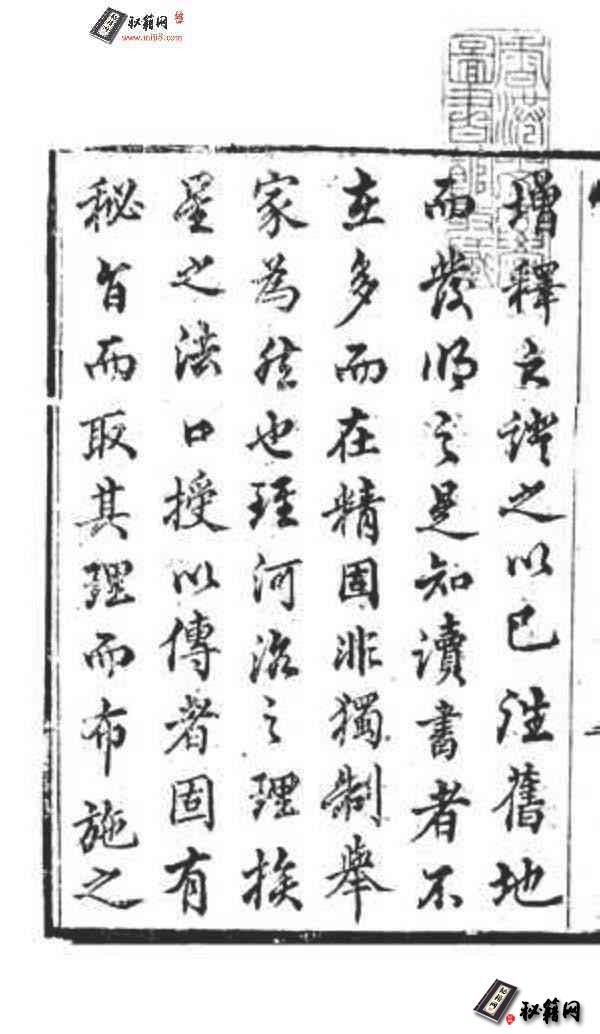 秘籍网
www.miji8.com
增釋之證之以已往舊地
而發明之是知讀書者不
在多而在精固非獨制舉
家為然也玨河洛之理挨
星之法口授以傳者固有
秘旨而取其理而布施之
秘籍网